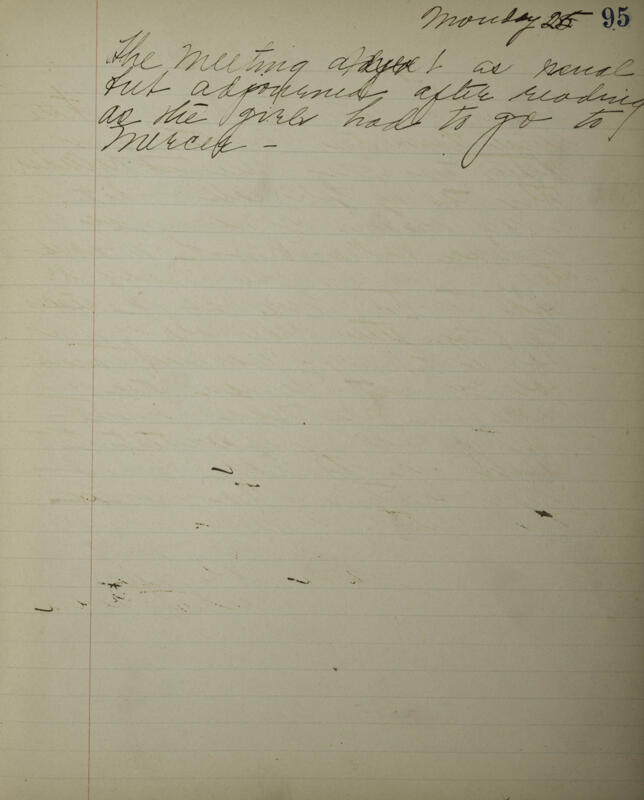 Monday 25 95
The meeting as usual
but adjourned after reading
as the girls had to go to
Mercer -